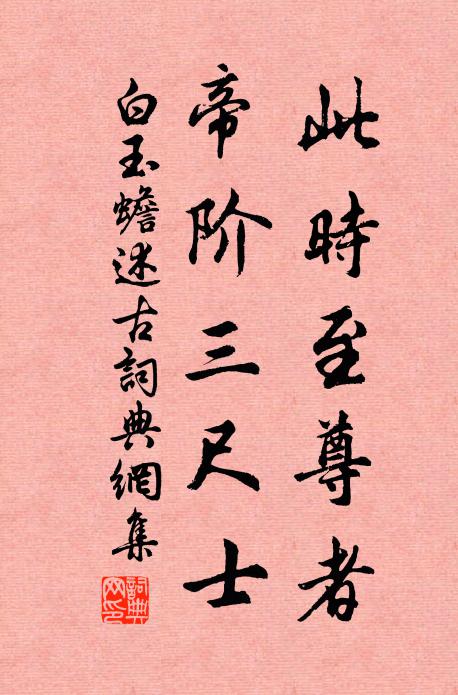 此時至尊者
帝阶三尺士
白玉蟾述古詞典網集
詞典網印